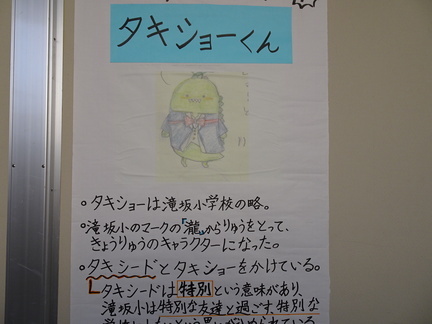 タキショーくん
・タキショーは滝坂小学校の略。
・滝坂小のマークの「瀧」からりゅうをとって、
きょうりゅうのキャラクターになった。
・タキシードとタキショーをかけている。
タキシードは特別という意味があり、
滝坂小は特別な友達と過ごす、特別な